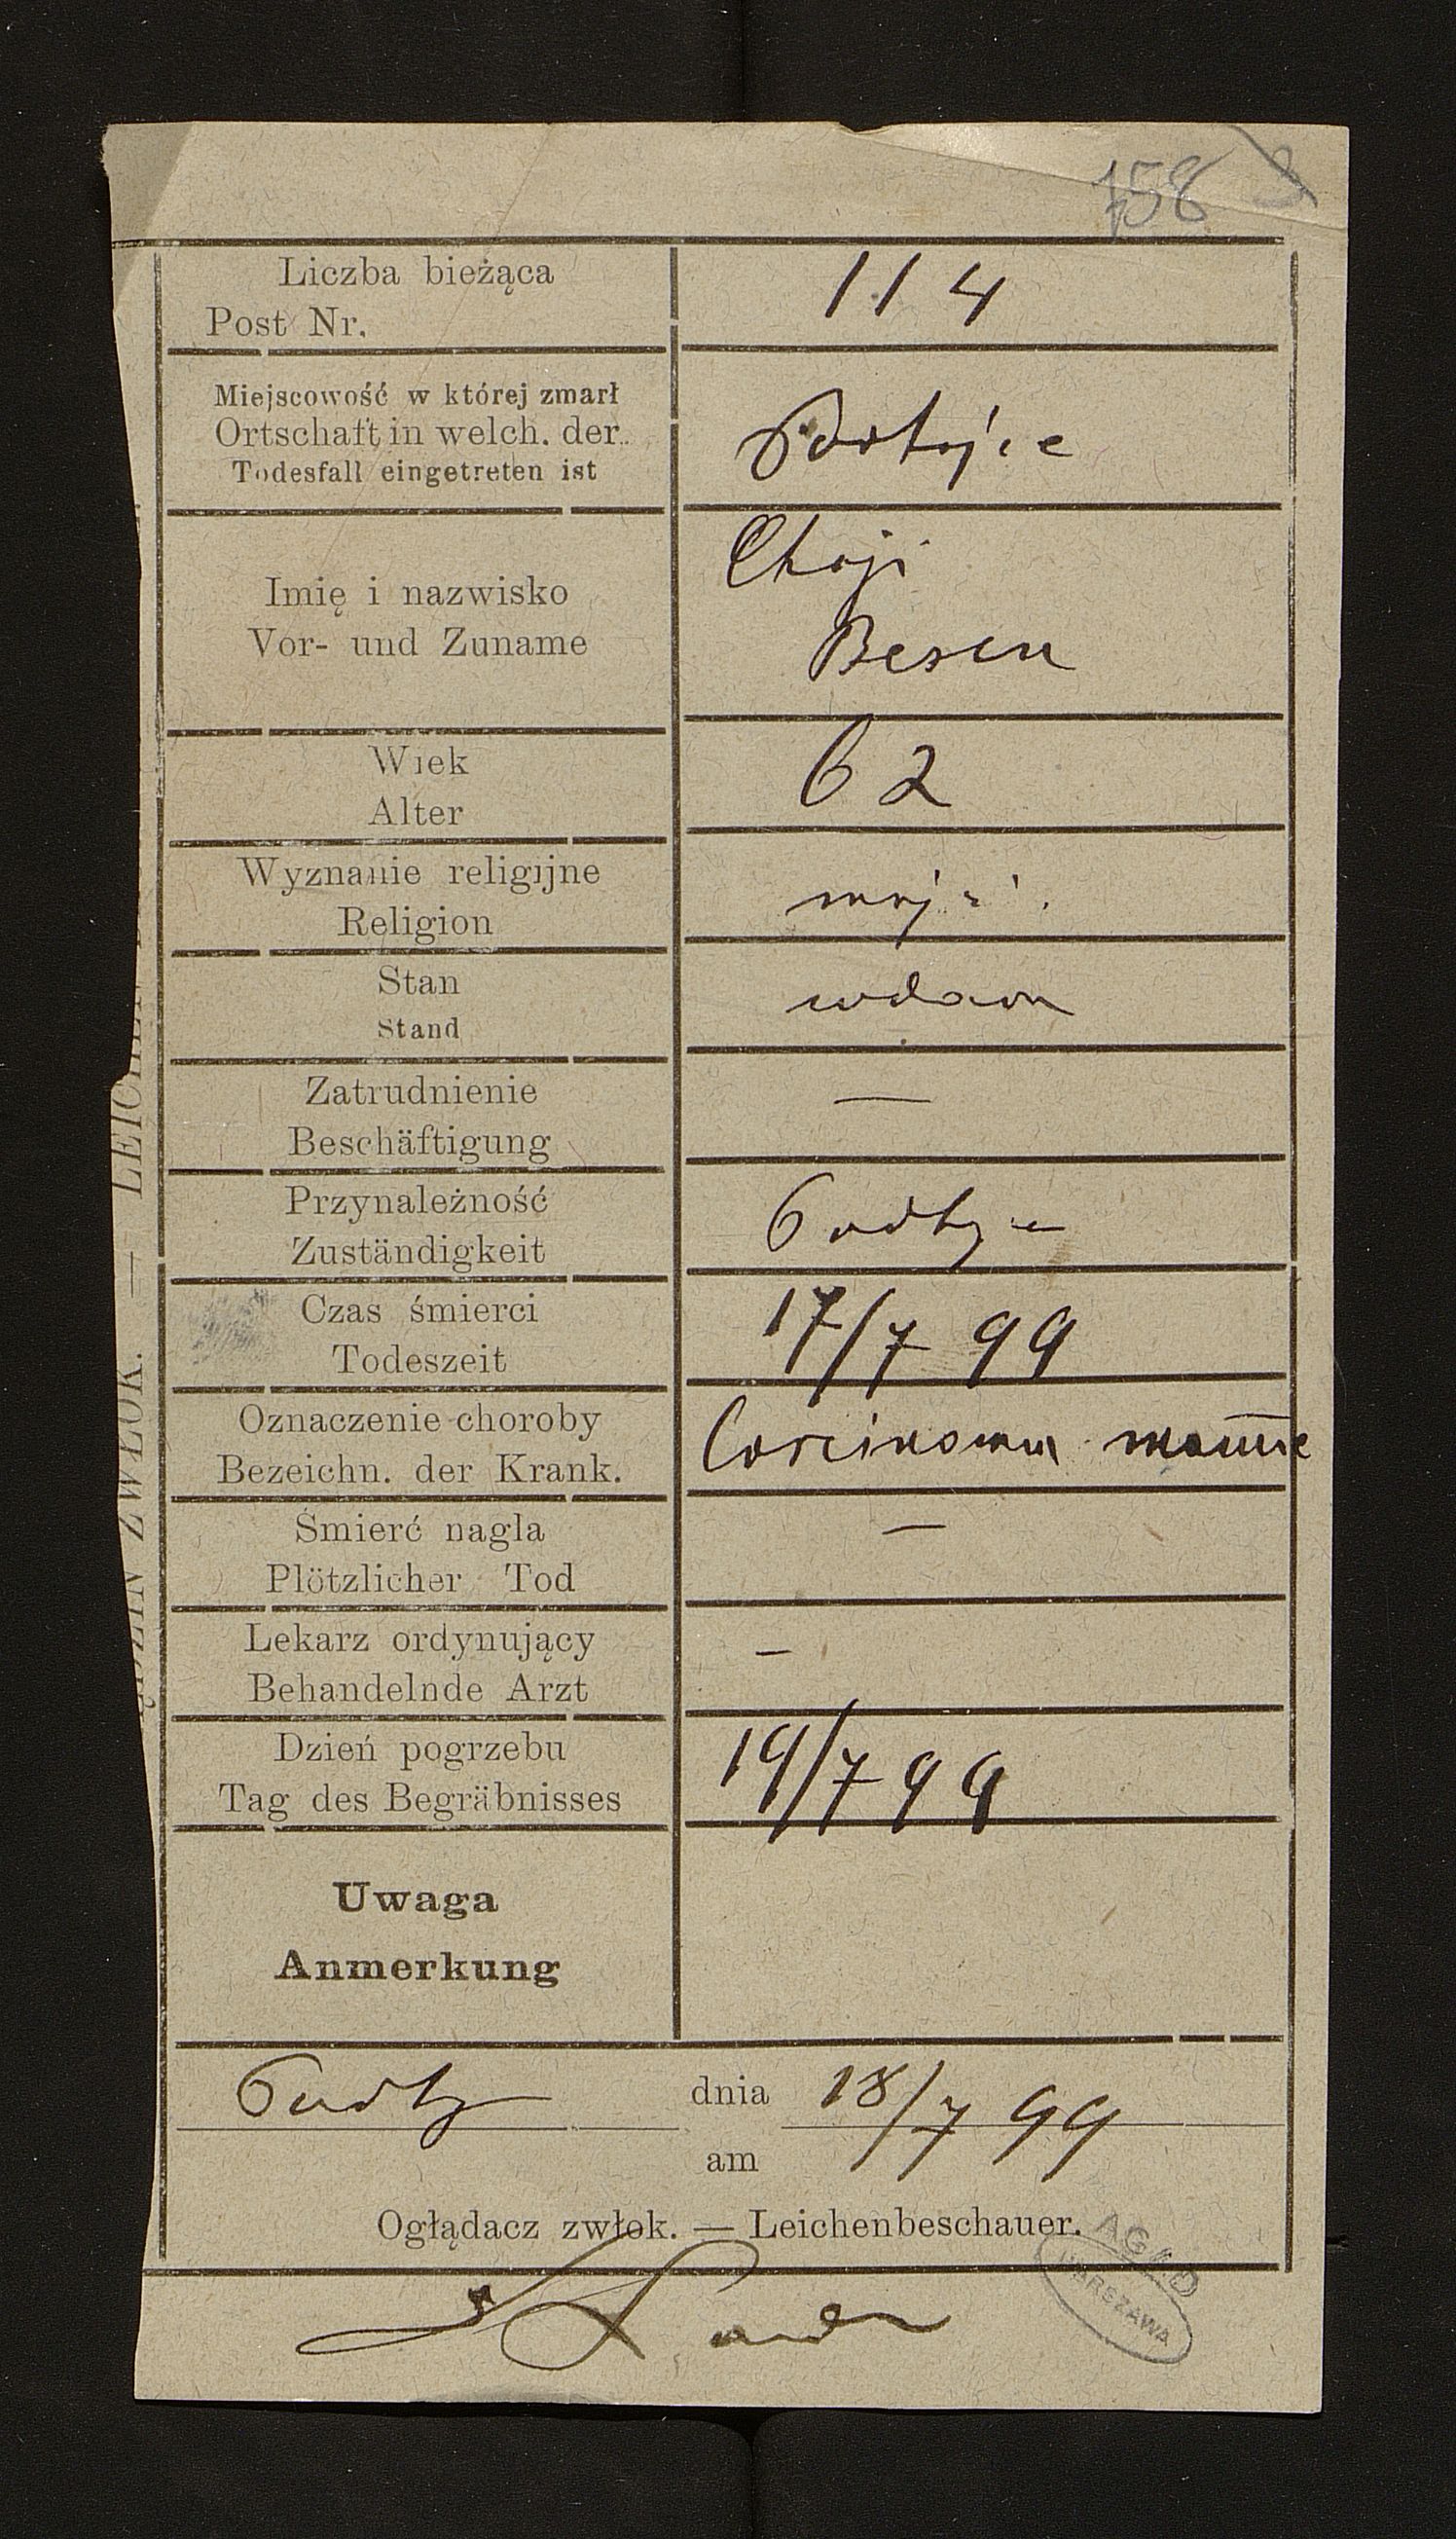 758
Liczba bieżąca
Post Nr.
114
Miejscowość w której zmarł
Ortschaft in welch. der
Todesfall eingetreten ist
Imię i nazwisko
Vor- und Zuname
Chaji
Besen
Wiek
Alter
62
Wyznanie religijne
Religion
mojż.
Stan
Stand
wdowa
Zatrudnienie
Beschäftigung
—
Przynależność
Zuständigkeit
Czas śmierci
Todeszeit
17/7 99
Oznaczenie choroby
Bezeichn. der Krank.
Carcinoma mammae
Śmierć nagła
Plötzlicher Tod
—
Lekarz ordynujący
Behandelnde Arzt
—
Dzień pogrzebu
Tag des Begräbnisses
19/7 99
Uwaga
Anmerkung
dnia 18/7 99
am
Oglądacz zwłok. — Leichenbeschauer.
AGAD
WARSZAWA
ZWŁOK. —